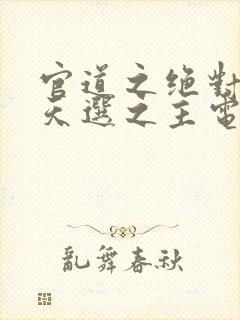 官道之绝對
天選之主電
亂舞春秋